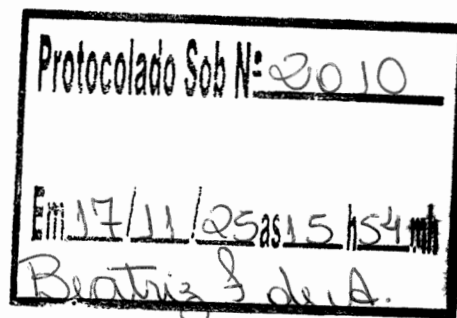 Protocolado Sob Nº 2010
Em 17/11/25 as 15 h 54 mn
Beatriz de A.